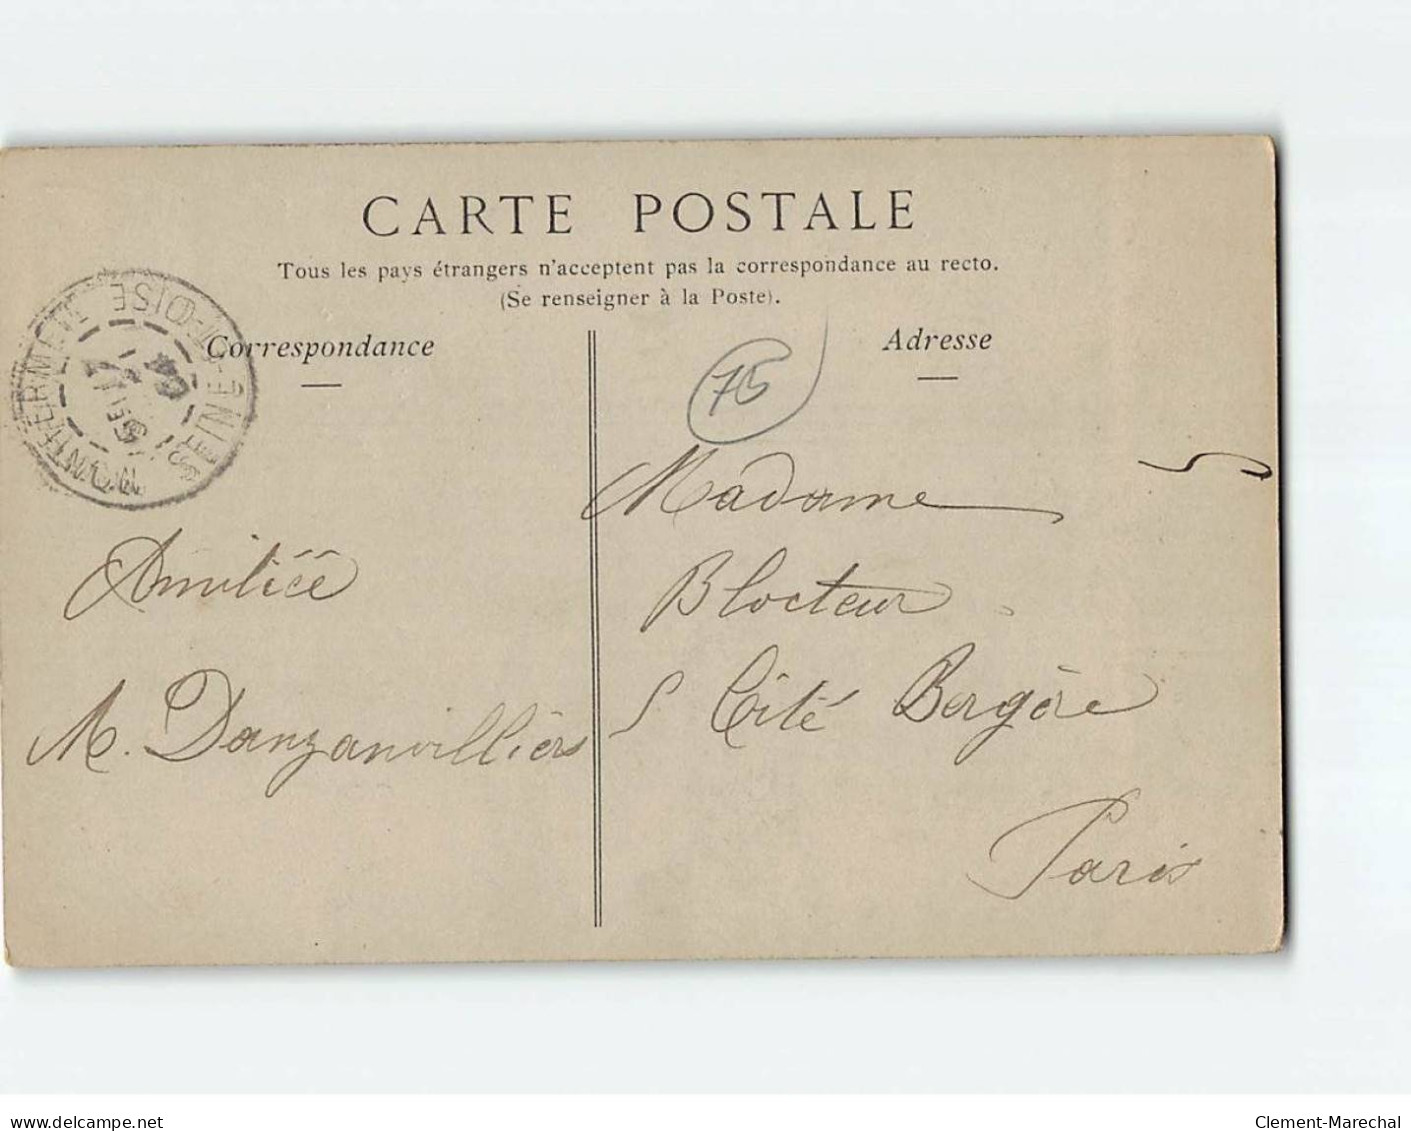 CARTE POSTALE
Tous les pays étrangers n'acceptent pas la correspondance au recto.
(Se renseigner à la Poste).
Correspondance
Adresse
MONTFERMEIL SEINE-ET-OISE
04
75
Madame
Amitiée
Blocteur
M. Danzanvilliers
5 Cité Bergère
Paris
www.delcampe.net
Clement-Marechal